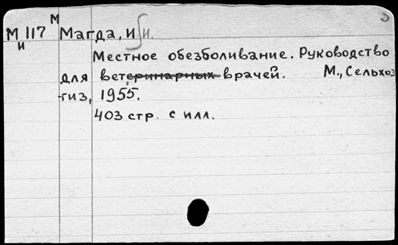 М
М 117 Магда, И И.
и
Местное обезболивание. Руководство
для ветеринарных врачей. М., Сельхоз
гиз, 1955.
403 стр. с илл.